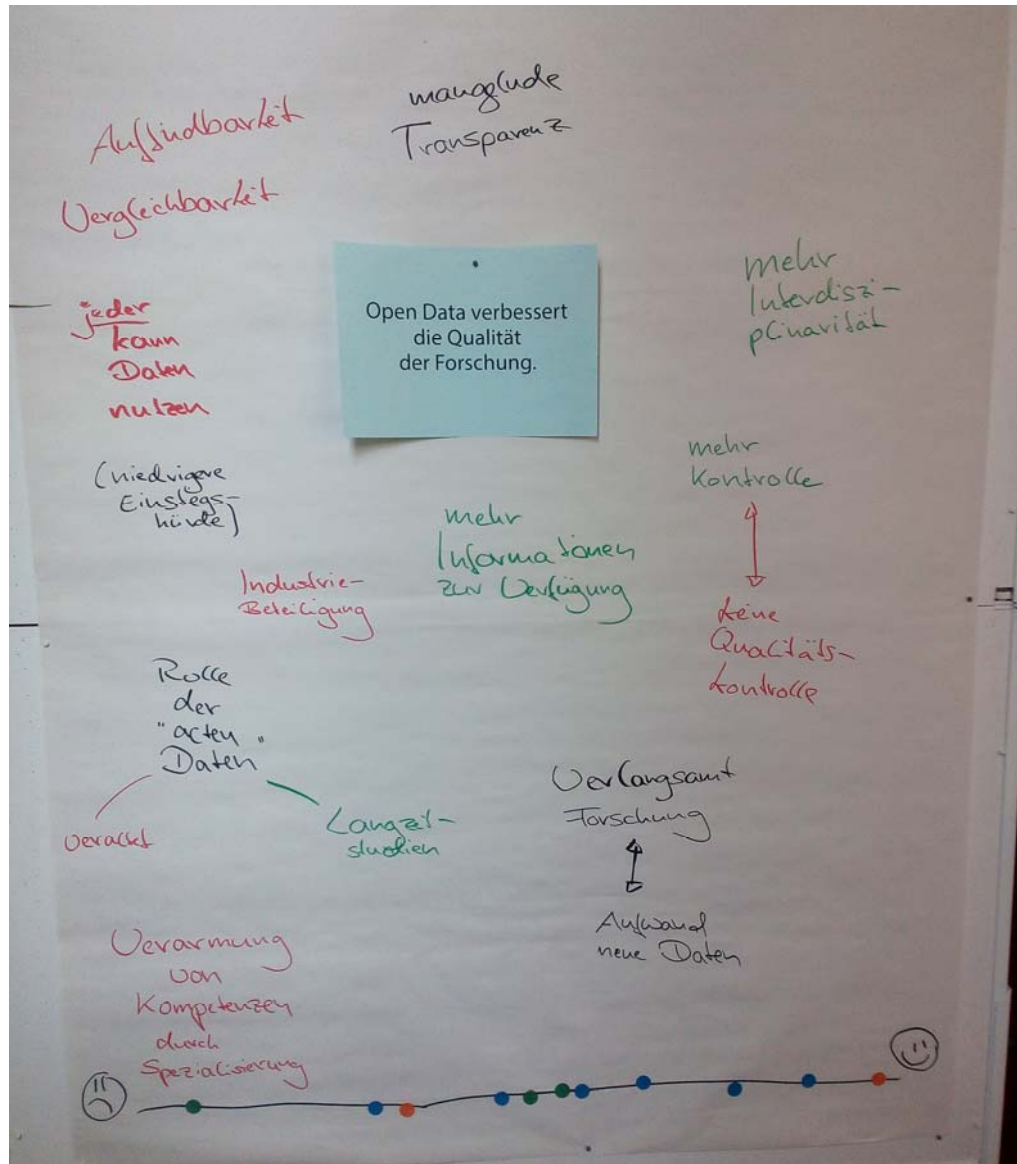 Auffindbarkeit
manglnde
Transparenz
Vergleichbarkeit
Open Data verbessert
die Qualität
der Forschung.
mehr
Interdiszi-
plinarität
jeder
kann
Daten
nutzen
(niedrigere
Einstegs-
hürde)
mehr
Kontrolle
keine
Qualitäts-
kontrolle
mehr
Informationen
zur Verfügung
Industrie-
Beteiligung
Rolle
der
"alten"
Daten
veraltet
Langzeit-
studien
Verlangsamt
Forschung
Aufwand
neue Daten
Verarmung
von
Kompetenzen
durch
Spezialisierung